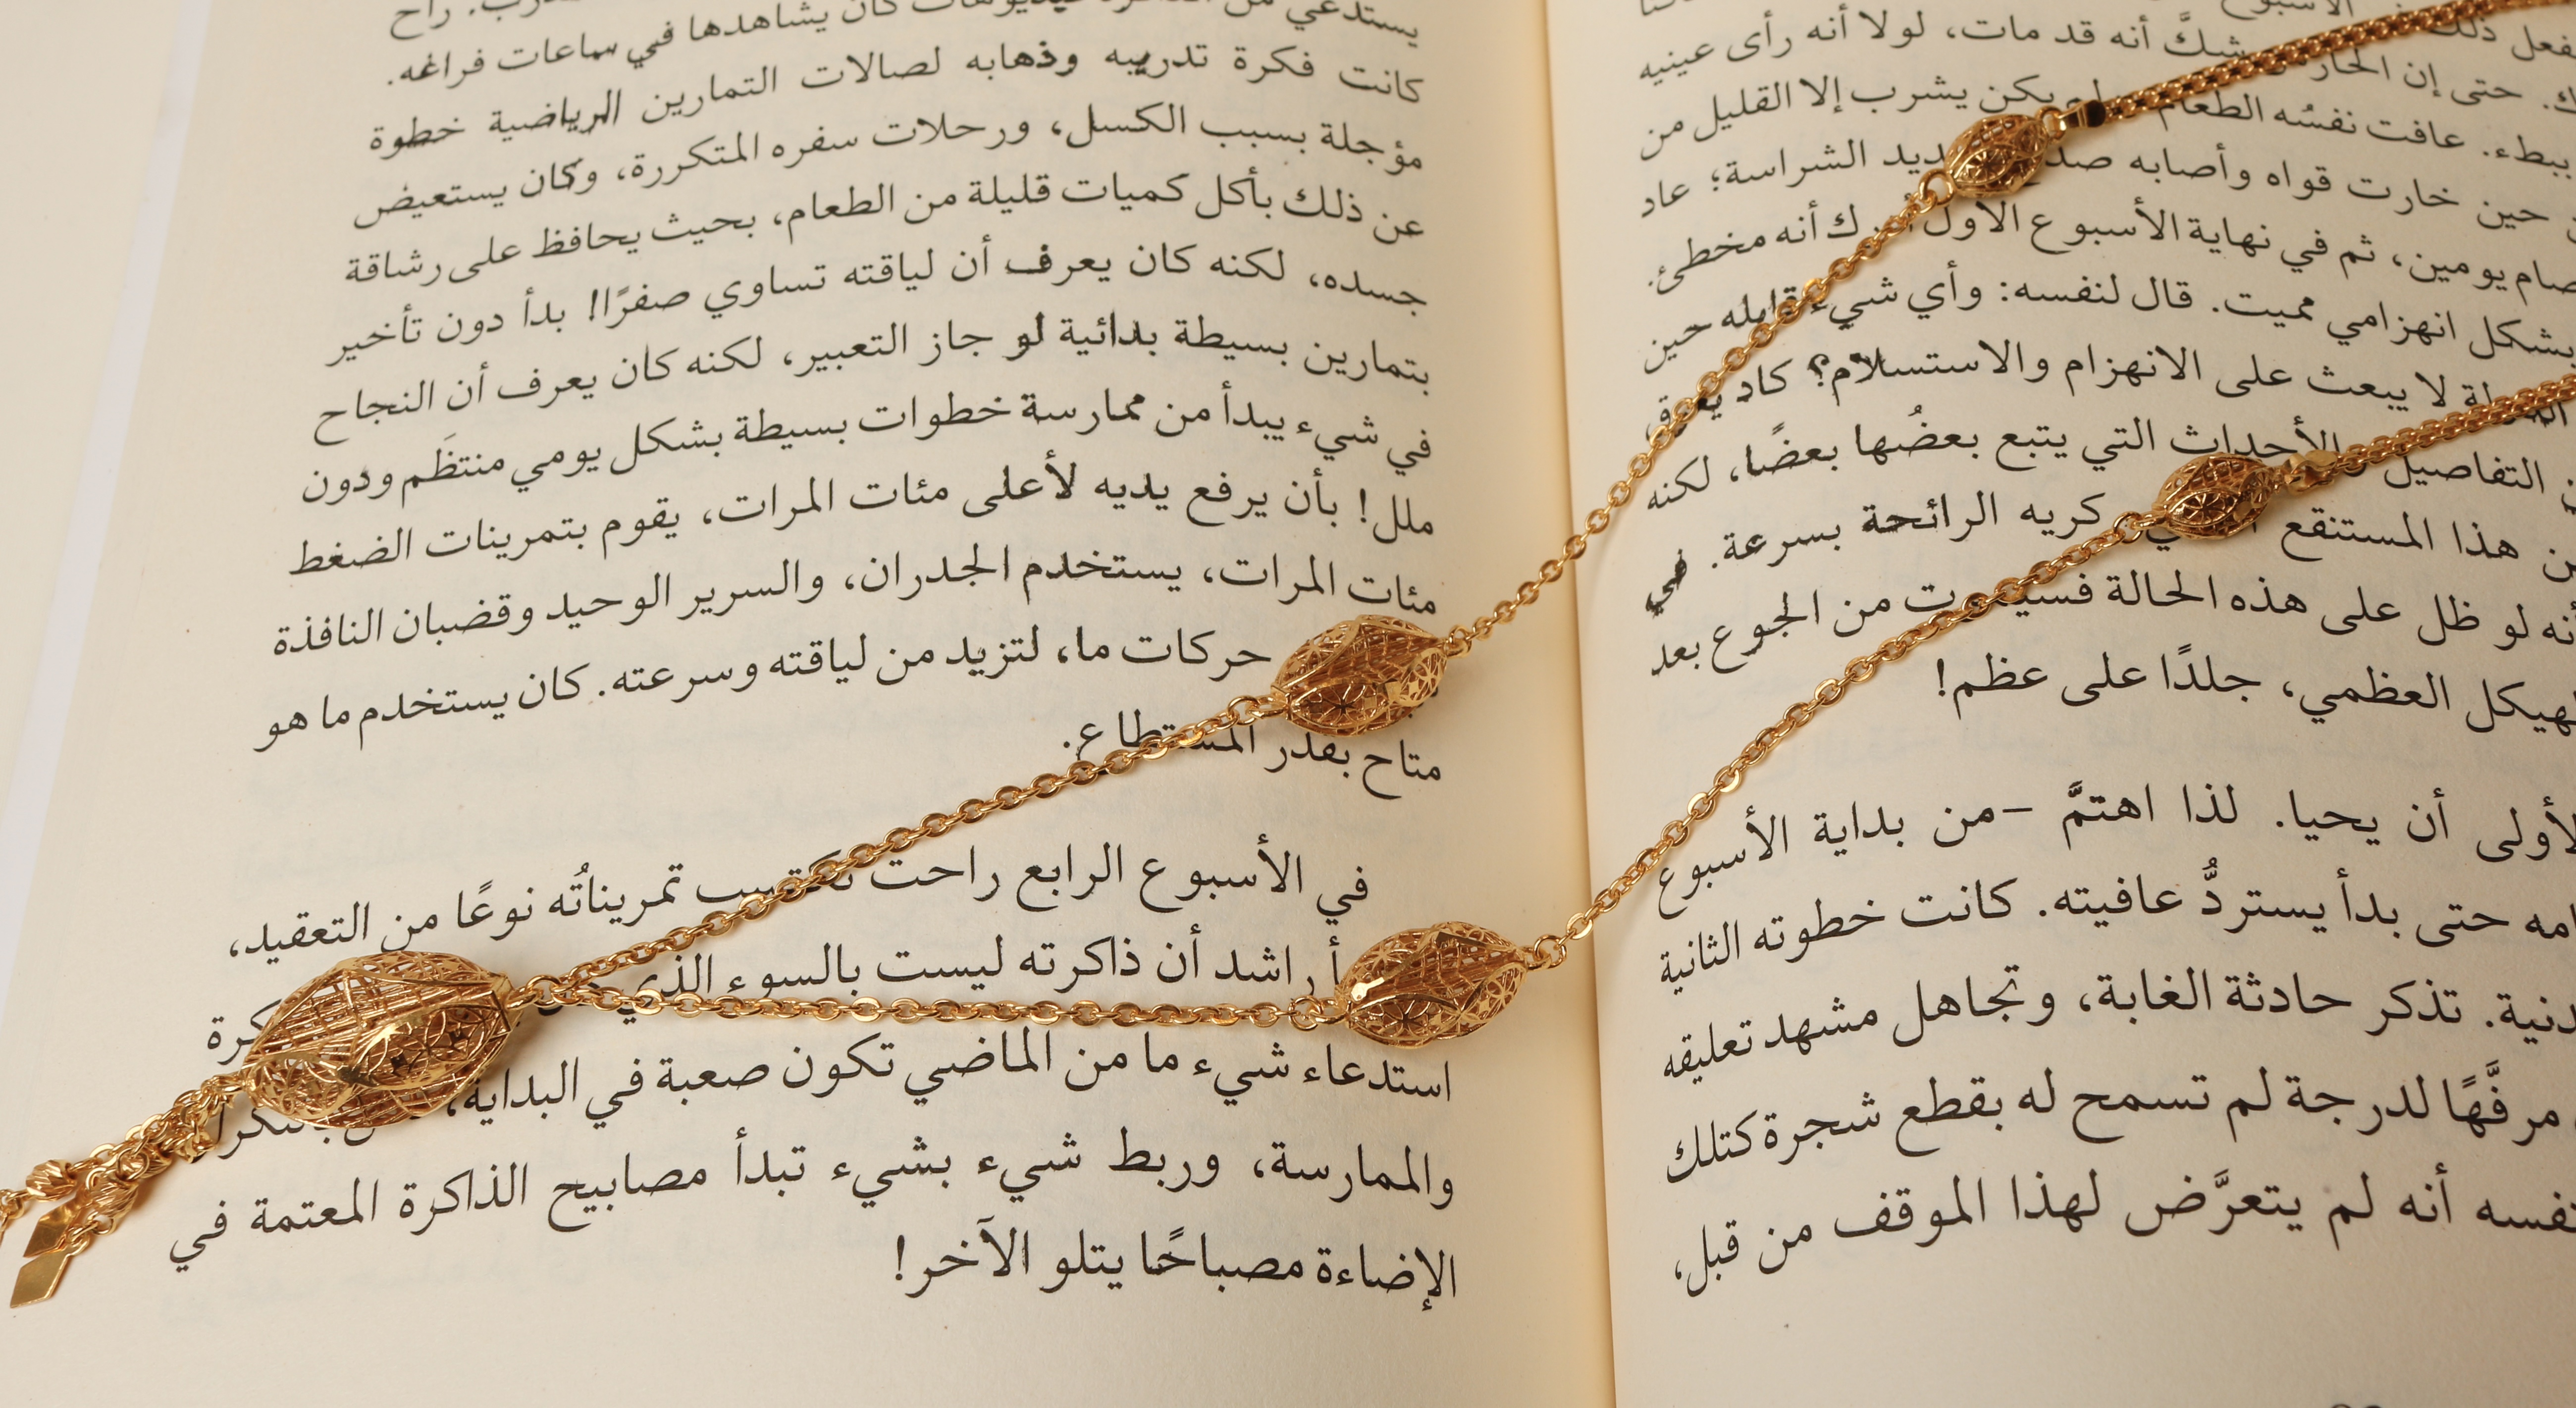 شكَّ أنه قد مات، لولا أنه رأى عينيه
حتى إن يكن يشرب إلا القليل من
ببطء. عافت نفسُه الطعام
حين خارت قواه وأصابه الشراسة؛ عاد
يومين، ثم في نهاية الأسبوع الأول أنه مخطئ.
بشكل انهزامي مميت. قال لنفسه: وأي شيء حين
لا يبعث على الانهزام والاستسلام؟ كاد
التفاصيل الأحداث التي يتبع بعضُها بعضًا، لكنه
هذا المستنقع كريه الرائحة بسرعة. في
لو ظل على هذه الحالة من الجوع بعد
العظمي، جلدًا على عظم!
أن يحيا. لذا اهتمَّ –من بداية الأسبوع
حتى بدأ يستردُّ عافيته. كانت خطوته الثانية
تذكر حادثة الغابة، وتجاهل مشهد تعليقه
مرفَّهًا لدرجة لم تسمح له بقطع شجرة كتلك
أنه لم يتعرَّض لهذا الموقف من قبل،
كان يشاهدها في ساعات فراغه.
كانت فكرة تدريبه وذهابه لصالات التمارين الرياضية خطوة
مؤجلة بسبب الكسل، ورحلات سفره المتكررة، وكان يستعيض
عن ذلك بأكل كميات قليلة من الطعام، بحيث يحافظ على رشاقة
جسده، لكنه كان يعرف أن لياقته تساوي صفرًا! بدأ دون تأخير
بتمارين بسيطة بدائية لو جاز التعبير، لكنه كان يعرف أن النجاح
في شيء يبدأ من ممارسة خطوات بسيطة بشكل يومي منتظَم ودون
ملل! بأن يرفع يديه لأعلى مئات المرات، يقوم بتمرينات الضغط
مئات المرات، يستخدم الجدران، والسرير الوحيد وقضبان النافذة
حركات ما، لتزيد من لياقته وسرعته. كان يستخدم ما هو
متاح بقدر المستطاع.
في الأسبوع الرابع راحت تكتسب تمريناتُه نوعًا من التعقيد،
راشد أن ذاكرته ليست بالسوء الذي
استدعاء شيء ما من الماضي تكون صعبة في البداية،
والممارسة، وربط شيء بشيء تبدأ مصابيح الذاكرة المعتمة في
الإضاءة مصباحًا يتلو الآخر!